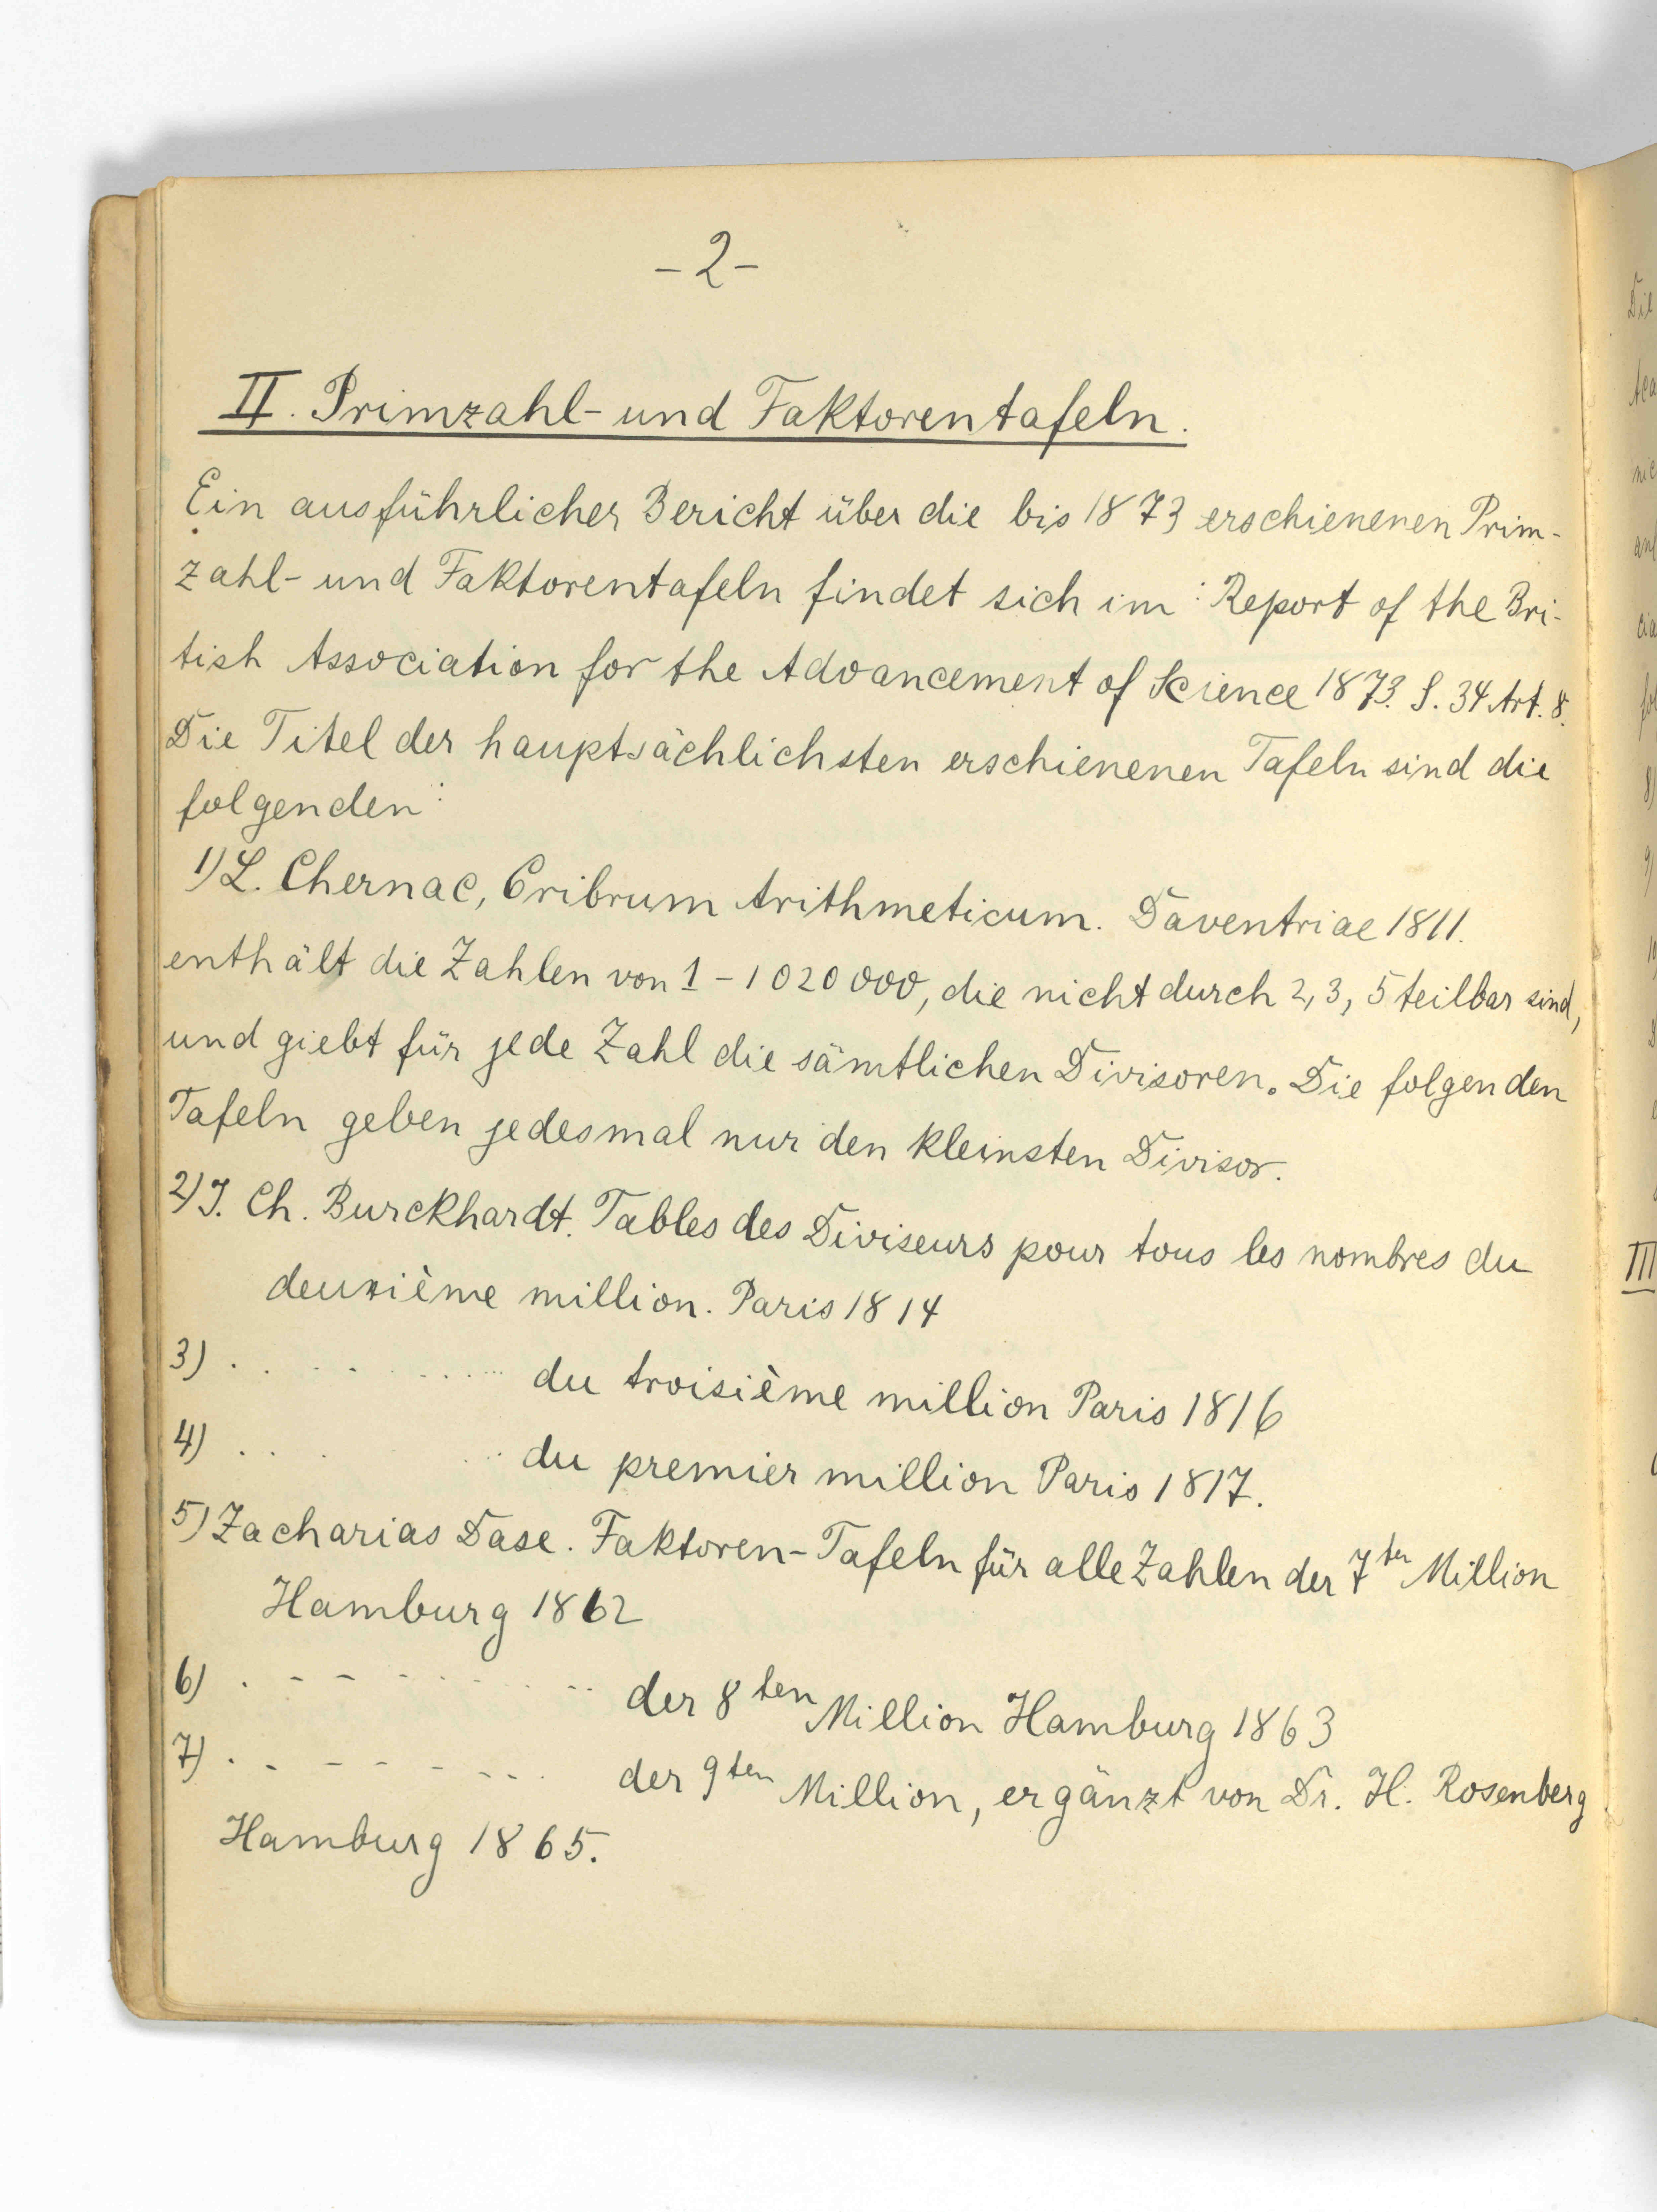 -2-
II. Primzahl- und Faktorentafeln.
Ein ausführlicher Bericht über die bis 1873 erschienenen Prim-
zahl- und Faktorentafeln findet sich im: Report of the Bri-
tish Association for the Advancement of Science 1873. S. 34 Art. 8.
Die Titel der hauptsächlichsten erschienenen Tafeln sind die
folgenden:
1) L. Chernac, Cribrum Arithmeticum. Daventriae 1811.
enthält die Zahlen von 1 - 1 020 000, die nicht durch 2, 3, 5 teilbar sind,
und giebt für jede Zahl die sämtlichen Divisoren. Die folgenden
Tafeln geben jedesmal nur den kleinsten Divisor.
2) J. Ch. Burckhardt. Tables des Diviseurs pour tous les nombres du
deuxième million. Paris 1814
3) . . . . . . . . . du troisième million Paris 1816
4) . . . . . . du premier million Paris 1817.
5) Zacharias Dase. Faktoren-Tafeln für alle Zahlen der 7ten Million
Hamburg 1862
6) . - - - . . . . . der 8ten Million Hamburg 1863
7) . - - - - - - . . der 9ten Million, ergänzt von Dr. H. Rosenberg
Hamburg 1865.
III